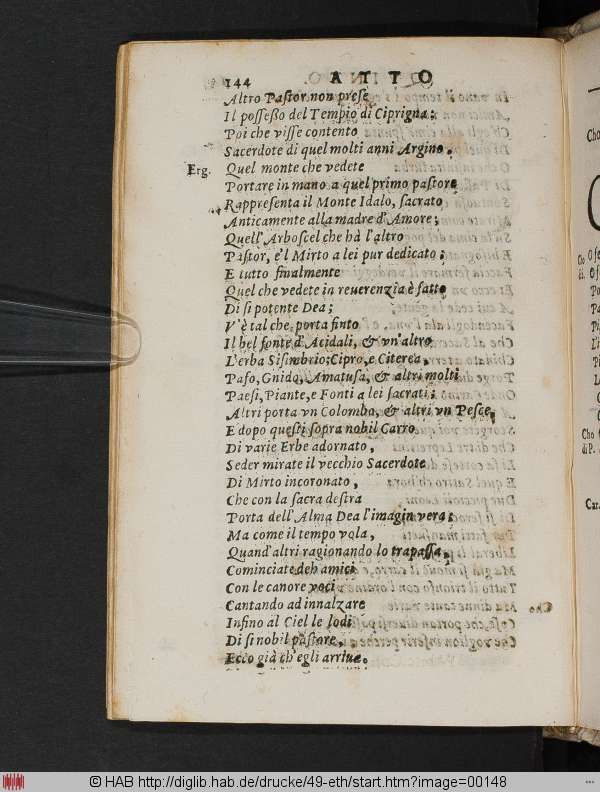 144 ATTO
Altro Pastor non prese
Il possesso del Tempio di Ciprigna;
Poi che visse contento
Sacerdote di quel molti anni Argino.
Erg. Quel monte che vedete
Portare in mano a quel primo pastore
Rappresenta il Monte Idalo, sacrato
Anticamente alla madre d'Amore;
Quell'Arboscel che hà l'altro
Pastor, è'l Mirto a lei pur dedicato;
E tutto finalmente
Quel che vedete in reuerenzia è fatto
Di sì potente Dea;
V'è tal che porta finto
Il bel fonte d'Acidali, & vn'altro
L'erba Sisimbrio; Cipro, e Citerea,
Pafo, Gnido, Amatusa, & altri molti
Paesi, Piante, e Fonti a lei sacrati;
Altri porta vn Colombo, & altri vn Pesce,
E dopo questi sopra nobil Carro
Di varie Erbe adornato,
Seder mirate il vecchio Sacerdote
Di Mirto incoronato,
Che con la sacra destra
Porta dell'Alma Dea l'imagin vera;
Ma come il tempo vola,
Quand'altri ragionando lo trapassa,
Cominciate deh amici
Con le canore voci
Cantando ad innalzare
Infino al Ciel le lodi
Di sì nobil pastore,
Ecco già ch'egli arriue.
Cho
Cho
Car.
© HAB http://diglib.hab.de/drucke/49-eth/start.htm?image=00148